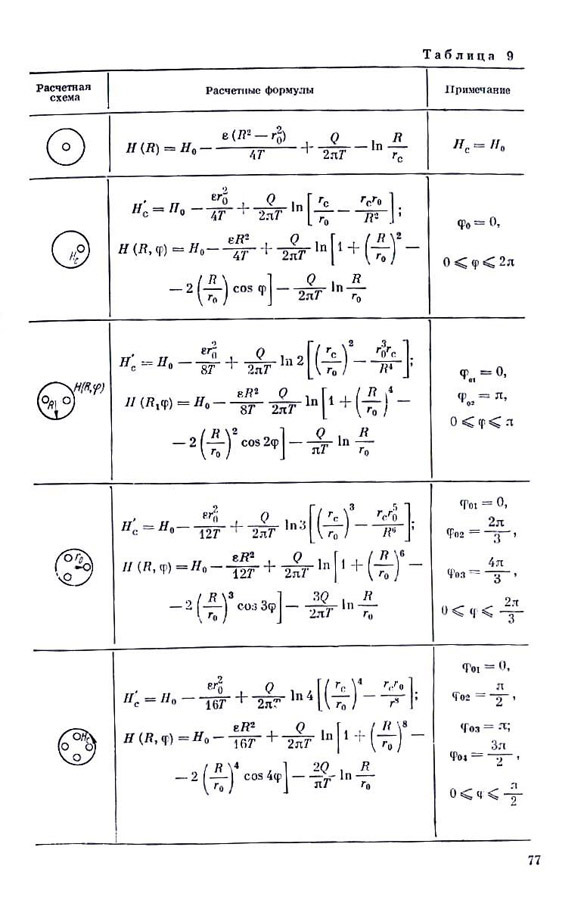 Таблица 9
Расчетная схема
Расчетные формулы
Примечание
H (R) = H₀ − ε (R² − r₀²) / 4T + Q / 2πT − ln R / r_c
H_c = H₀
H′_c = H₀ − εr₀² / 4T + Q / 2πT ln [ r_c / r₀ − r_c r₀ / R² ] ;
H (R, φ) = H₀ − εR² / 4T + Q / 2πT ln [ 1 + ( R / r₀ )² −
− 2 ( R / r₀ ) cos φ ] − Q / 2πT ln R / r₀
φ₀ = 0,
0 ⩽ φ ⩽ 2π
H_c
H′_c = H₀ − εr₀² / 8T + Q / 2πT ln 2 [ ( r_c / r₀ )² − r₀³ r_c / R⁴ ] ;
H (R₁φ) = H₀ − εR² / 8T Q / 2πT ln [ 1 + ( R / r₀ )⁴ −
− 2 ( R / r₀ )² cos 2φ ] − Q / πT ln R / r₀
φ₀₁ = 0,
φ₀₂ = π,
0 ⩽ φ ⩽ π
H(R,φ)
R
H′_c = H₀ − εr₀² / 12T + Q / 2πT ln 3 [ ( r_c / r₀ )³ − r_c r₀⁵ / R⁶ ] ;
H (R, φ) = H₀ − εR² / 12T + Q / 2πT ln [ 1 + ( R / r₀ )⁶ −
− 2 ( R / r₀ )³ cos 3φ ] − 3Q / 2πT ln R / r₀
φ₀₁ = 0,
φ₀₂ = 2π / 3 ,
φ₀₃ = 4π / 3 ,
0 ⩽ φ ⩽ 2π / 3
r₀
H′_c = H₀ − εr₀² / 16T + Q / 2πT ln 4 [ ( r_c / r₀ )⁴ − r_c r₀ / r⁸ ] ;
H (R, φ) = H₀ − εR² / 16T + Q / 2πT ln [ 1 + ( R / r₀ )⁸ −
− 2 ( R / r₀ )⁴ cos 4φ ] − 2Q / πT ln R / r₀
φ₀₁ = 0,
φ₀₂ = π / 2 ,
φ₀₃ = π;
φ₀₄ = 3π / 2 ,
0 ⩽ φ ⩽ π / 2
77